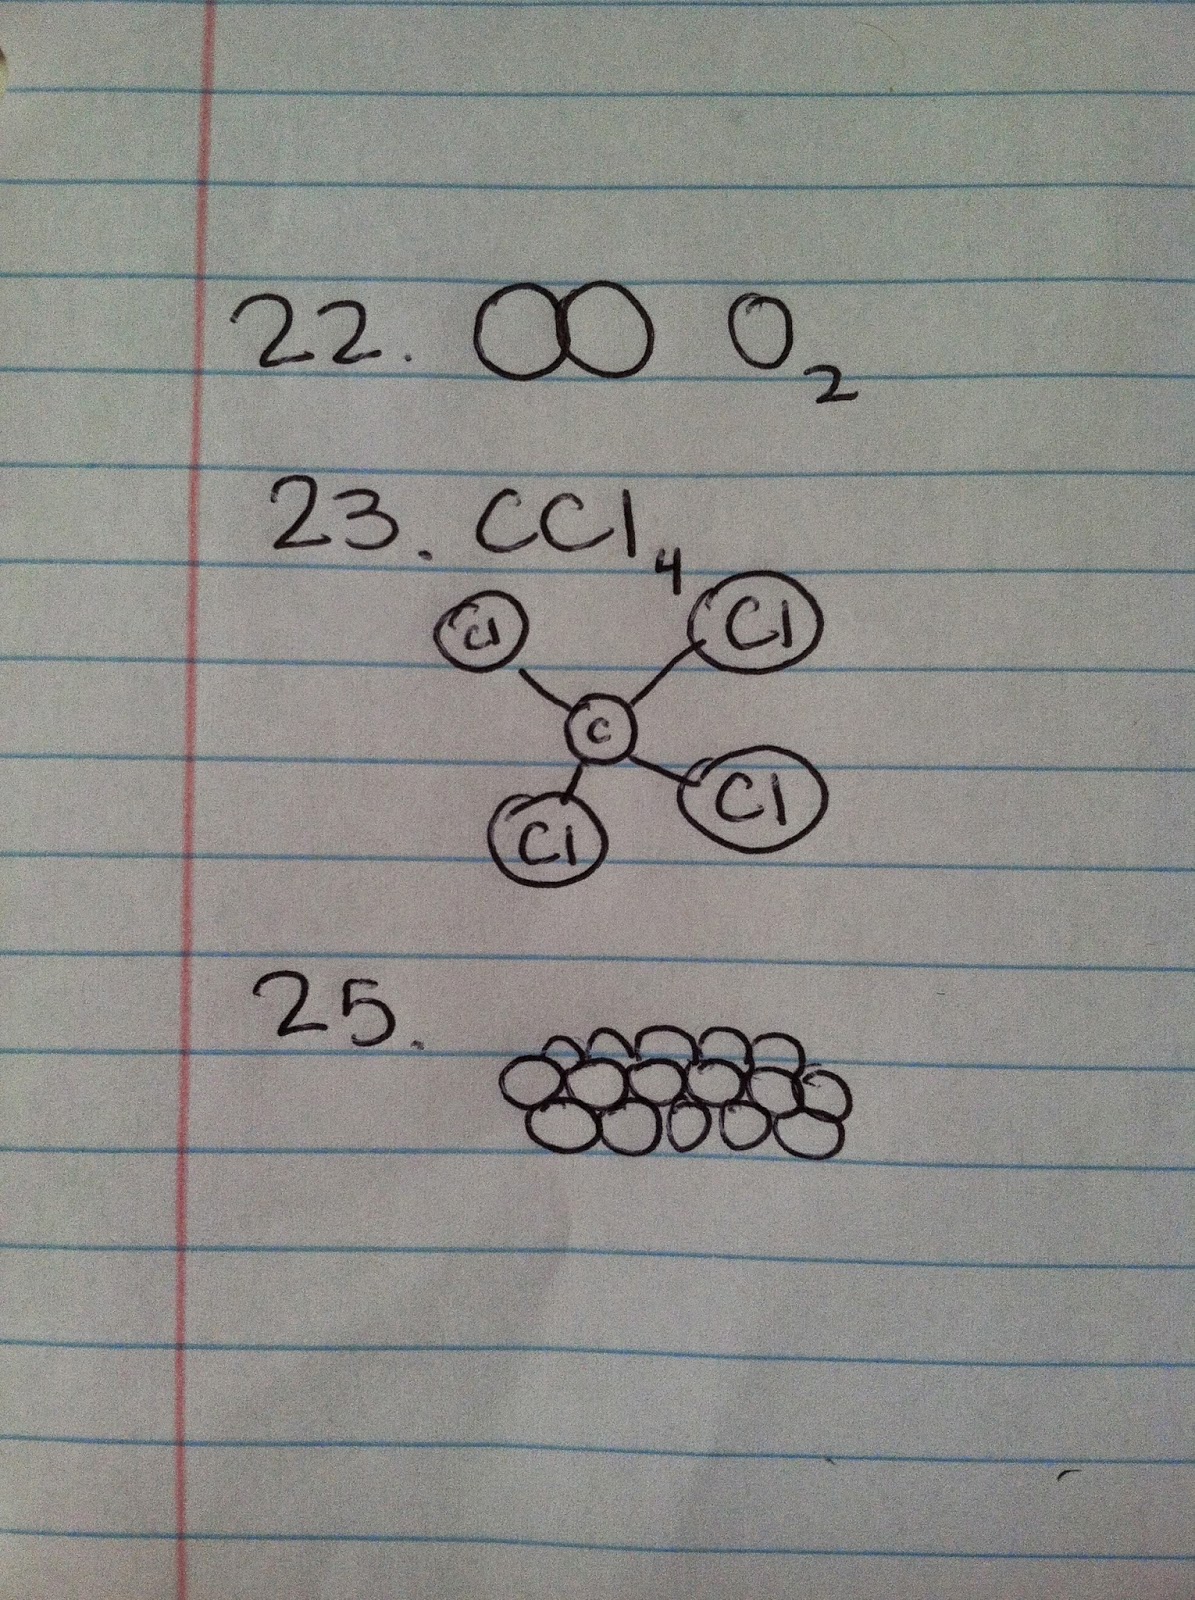 22. O₂
23. CCl₄
Cl Cl
C
Cl Cl
25.